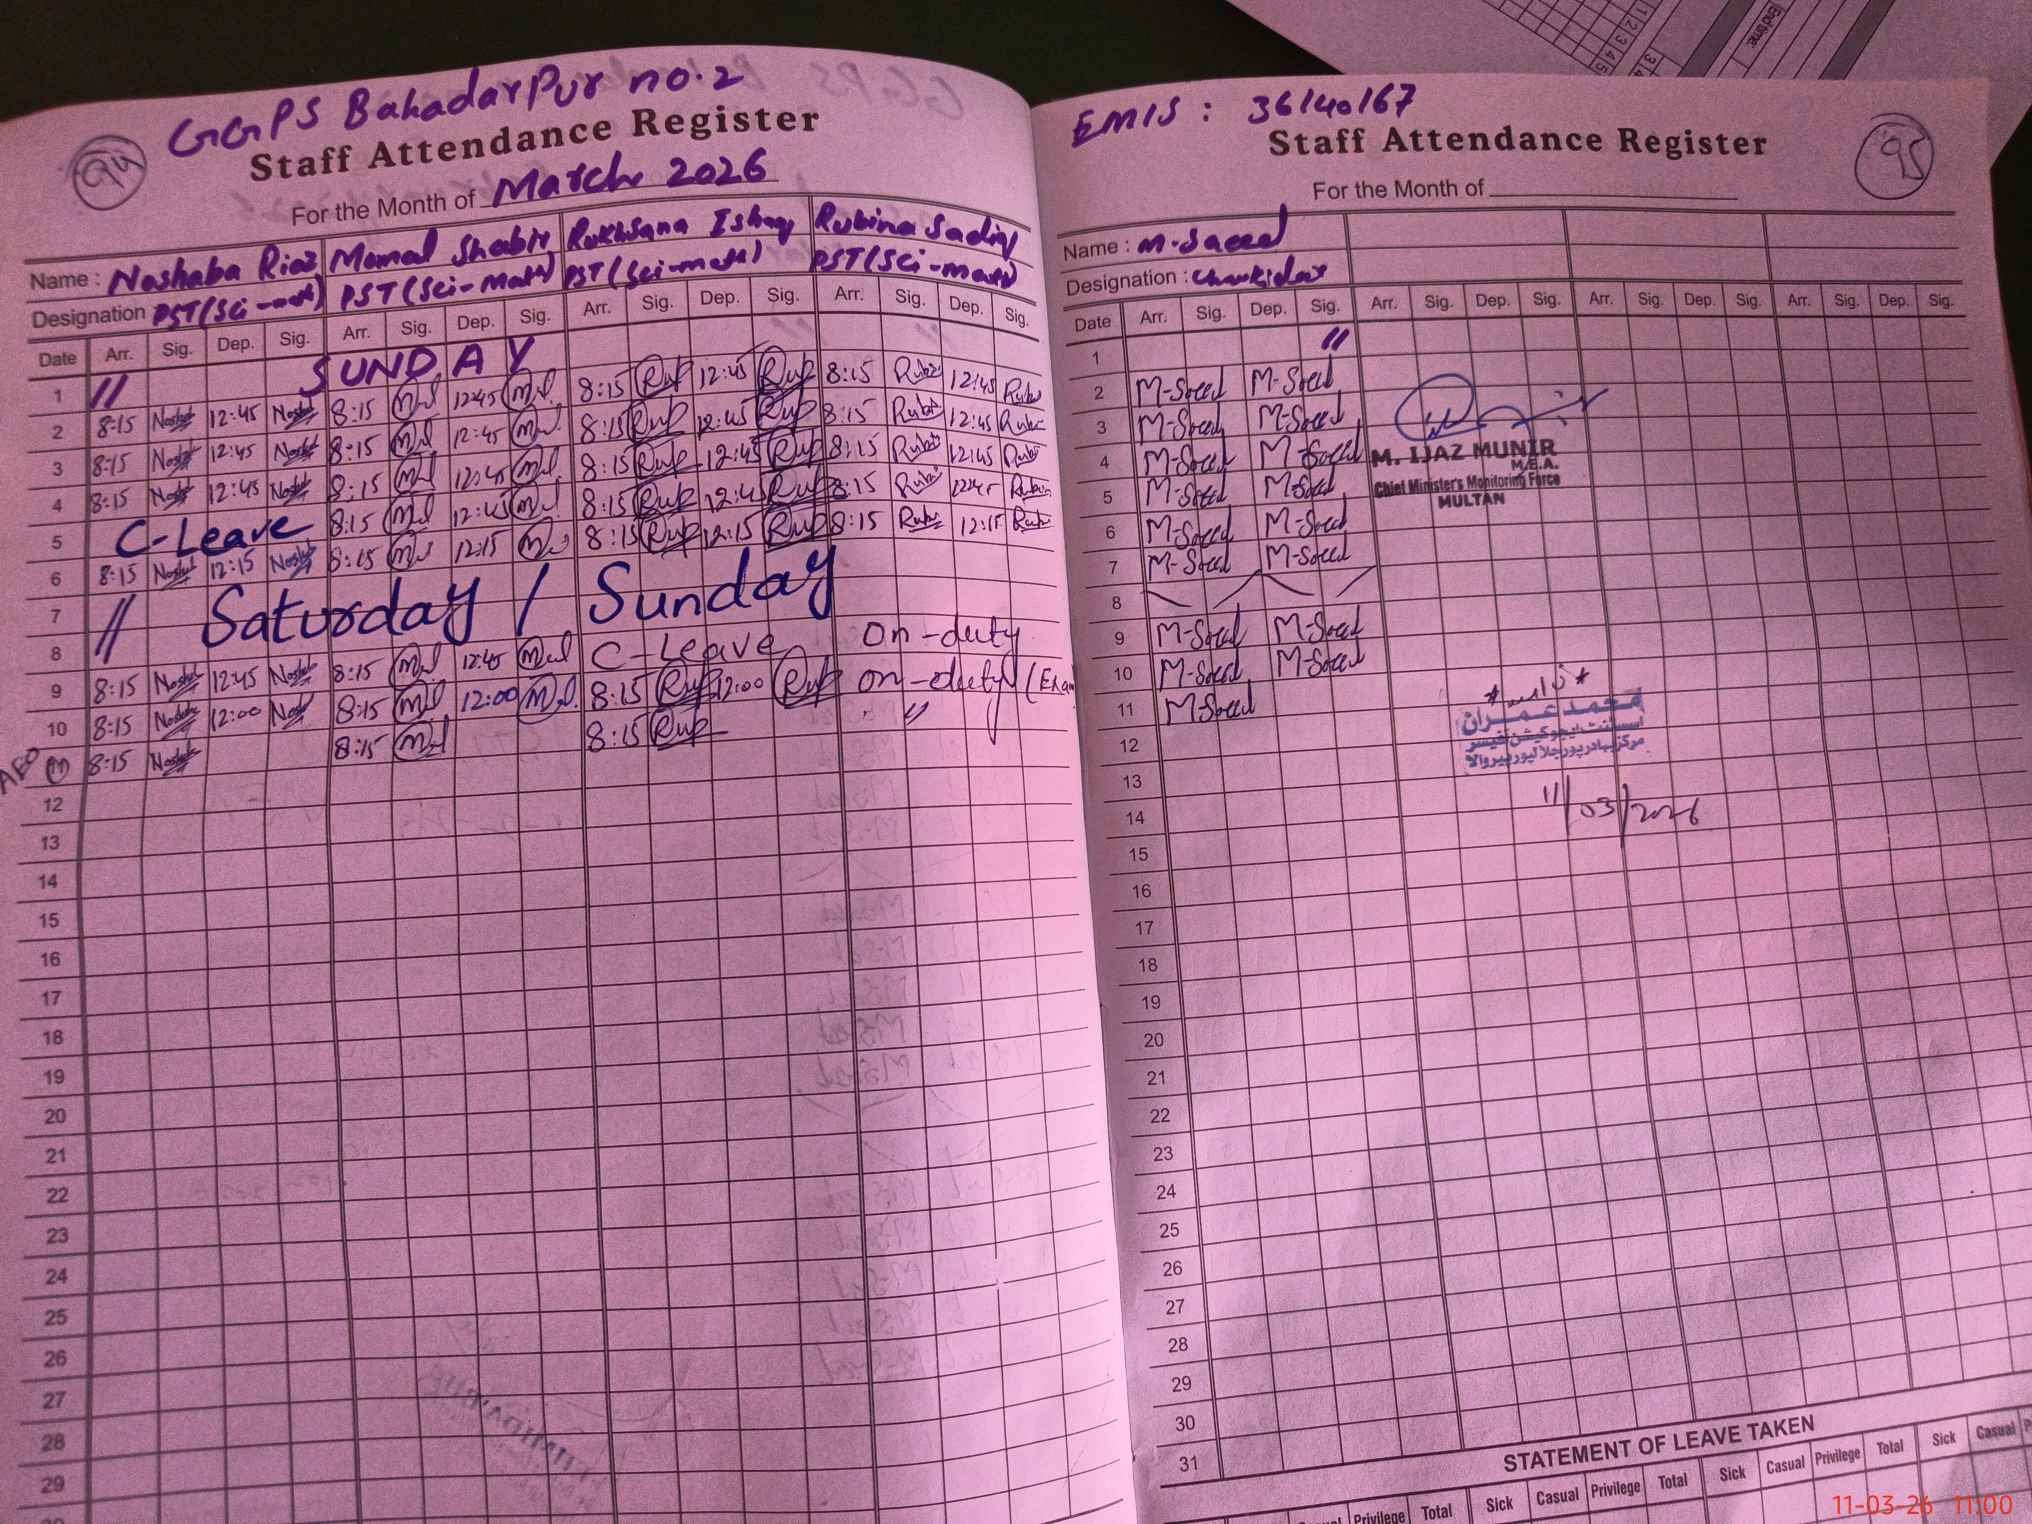 GGPS Bahadarpur no.2
94
Staff Attendance Register
For the Month of March 2026
Name : Noshaba Riaz Momal Shabir Rukhsana Ishaq Rubina Sadiq
Designation PST(Sci-math) PST(Sci-Math) PST(Sci-math) PST(Sci-math)
Date Arr. Sig. Dep. Sig. Arr. Sig. Dep. Sig. Arr. Sig. Dep. Sig. Arr. Sig. Dep. Sig.
1 // SUNDAY // //
2 8:15 12:45 8:15 12:45 8:15 Ruk 12:45 Ruk 8:15 Rubi 12:45 Rubi
3 8:15 12:45 8:15 12:45 8:15 Ruk 12:45 Ruk 8:15 Rubi 12:45 Rubi
4 8:15 12:45 8:15 12:45 8:15 Ruk 12:45 Ruk 8:15 Rubi 12:45 Rubi
5 C-Leave 8:15 12:45 8:15 Ruk 12:45 Ruk 8:15 Rubi 12:45 Rubi
6 8:15 12:15 8:15 12:15 8:15 Ruk 12:15 Ruk 8:15 Rubi 12:15 Rubi
7 // Saturday / Sunday
8
9 8:15 12:45 8:15 12:45 C-Leave On-duty
10 8:15 12:00 8:15 12:00 8:15 Ruk 12:00 Ruk on-duty (Exam
AEO 11 8:15 8:15 8:15 Ruk //
12
13
14
15
16
17
18
19
20
21
22
23
24
25
26
27
28
29
EMIS : 36140167
95
Staff Attendance Register
For the Month of
Name : M-Saeed
Designation : Chaukidar
Date Arr. Sig. Dep. Sig. Arr. Sig. Dep. Sig. Arr. Sig. Dep. Sig. Arr. Sig. Dep. Sig.
1 //
2 M-Saeed M-Saeed
3 M-Saeed M-Saeed
4 M-Saeed M-Saeed
5 M-Saeed M-Saeed
6 M-Saeed M-Saeed
7 M-Saeed M-Saeed
8
9 M-Saeed M-Saeed
10 M-Saeed M-Saeed
11 M-Saeed
12
13
14
15
16
17
18
19
20
21
22
23
24
25
26
27
28
29
30
31
M. IJAZ MUNIR
M.E.A.
Chief Minister's Monitoring Force
MULTAN
محمد عمران
اسسٹنٹ ایجوکیشن آفیسر
مرکز بہادرپور جلالپور پیروالا
11/03/2026
STATEMENT OF LEAVE TAKEN
Casual Privilege Total Sick Casual Privilege Total Sick Casual Privilege Total Sick Casual
End time:
11-03-26 11:00